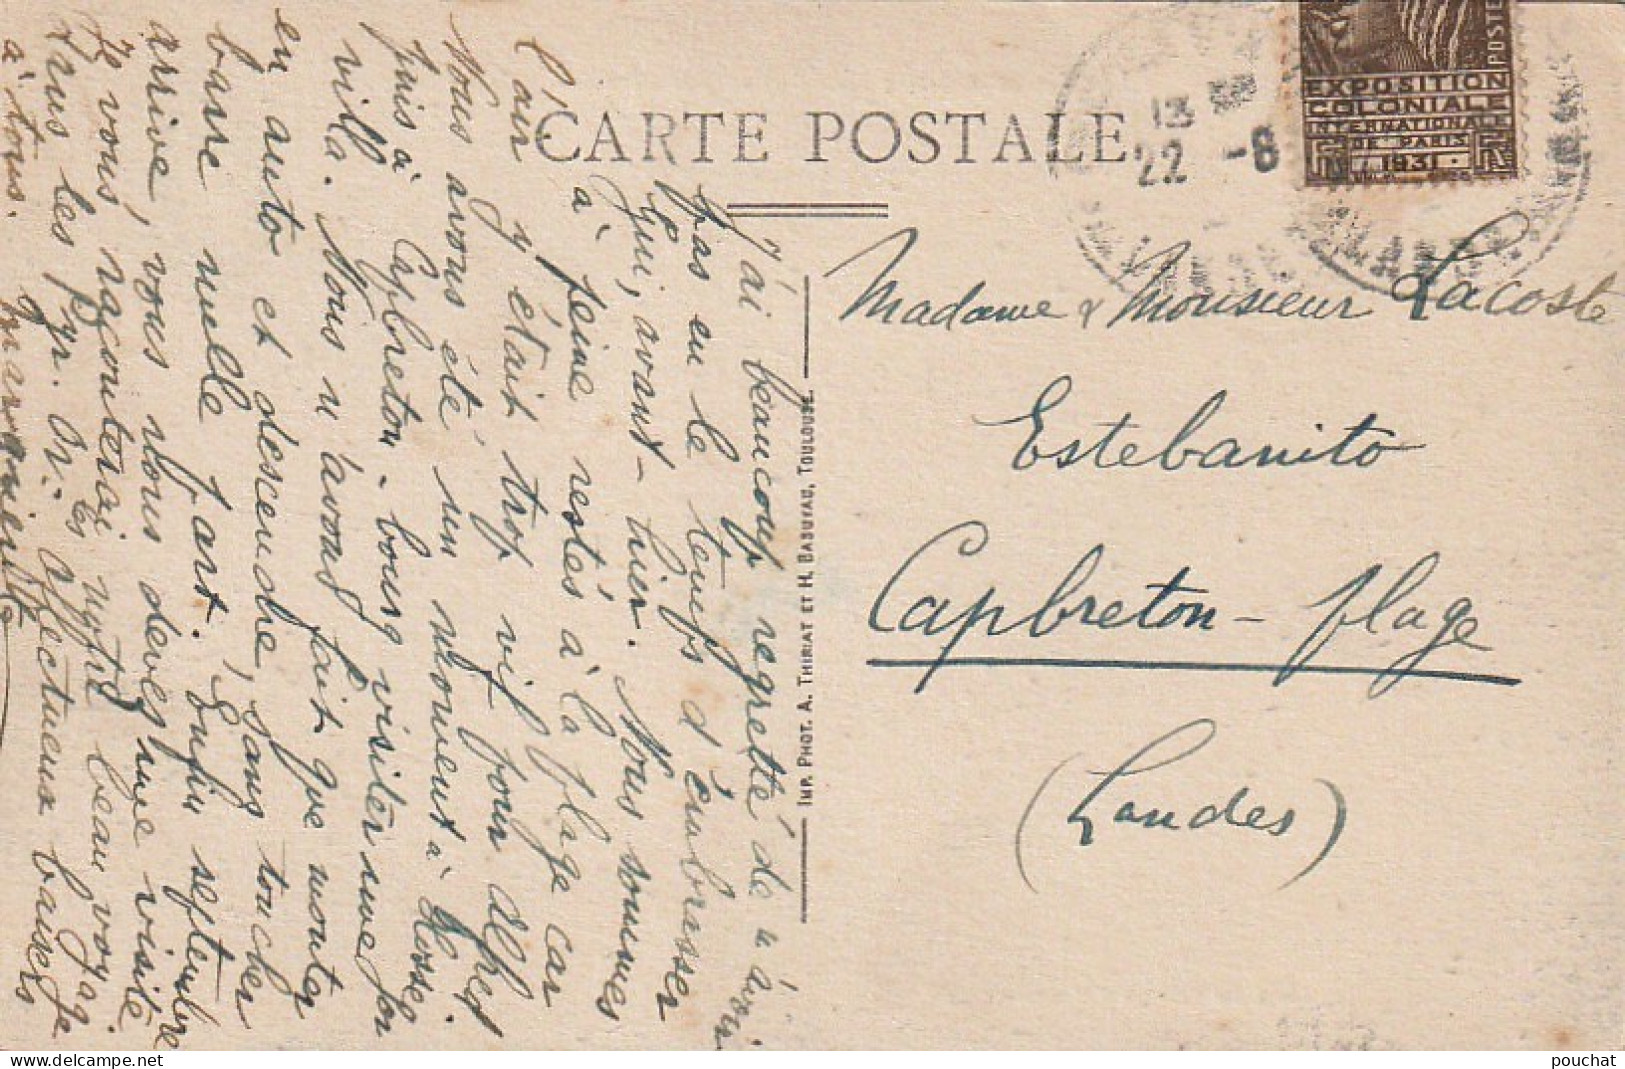 CARTE POSTALE
EXPOSITION
COLONIALE
INTERNATIONALE
DE PARIS
1931
POSTES
RF
13
22 -8
J'ai beaucoup regretté de n'avoir
pas eu le temps d'embrasser
Gui, avant-hier. Nous sommes
à peine restés à la plage car
l'air y était trop vif pour
Nous avons été un moment à Hosseg
puis à Capbreton-bourg visiter une
villa. Nous n'avons fait que monter
en auto et descendre, sans toucher
barre nulle part. Enfin septembre
arrive, vous nous devez une visite
Je vous raconterai notre beau voyage
dans les Pyr. Or. Es affectueux baisers
à tous. Marguerite
IMP. PHOT. A. THIRIAT ET H. BASUYAU, TOULOUSE.
Madame & Monsieur Lacoste
Estebanito
Capbreton-plage
(Landes)
pouchat